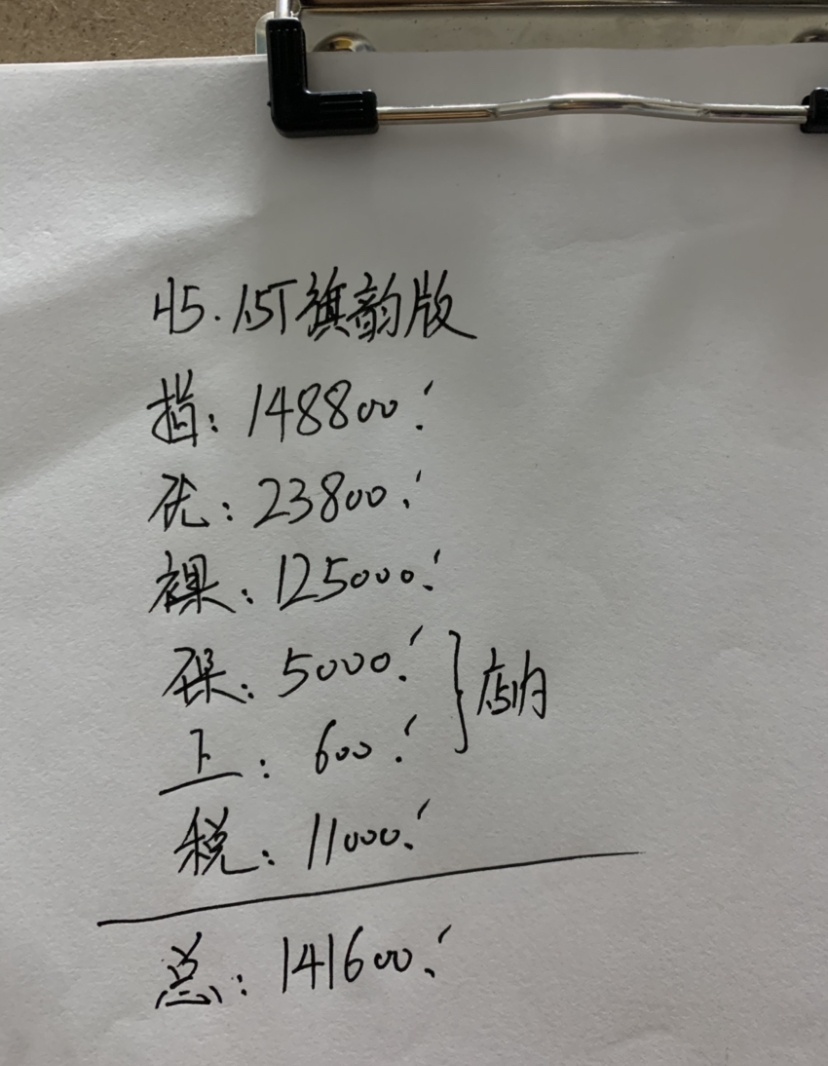 H5.1.5T旗韵版
指:148800.
优:23800.
裸:125000.
保:5000.
上:600. 店内
税:11000.
总:141600.